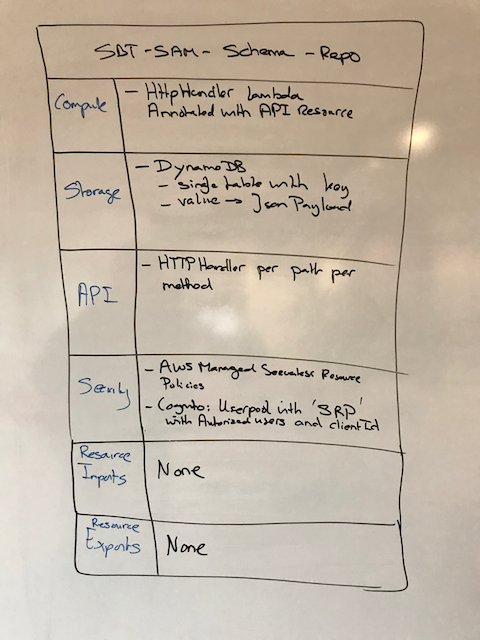 SBT - SAM - Schema - Repo
Compute
- HttpHandler Lambda
Annotated with API Resource
Storage
- DynamoDB
- single table with key
- value → Json Payload
API
- HTTPHandler per path per
method
Security
- AWS Managed Serverless Resource
Policies
- Cognito: Userpool with 'SRP'
with Autorized users and clientId
Resource
Imports
None
Resource
Exports
None